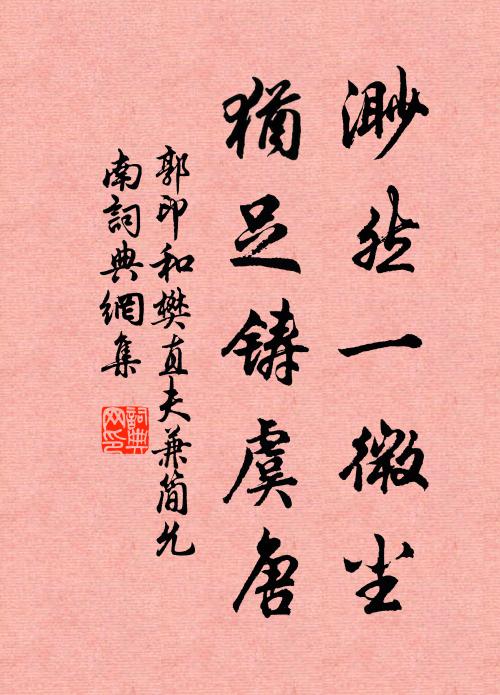 渺然一微尘
犹足铸虞唐
郭印和樊直夫兼简允
南詞典網集
詞典网印